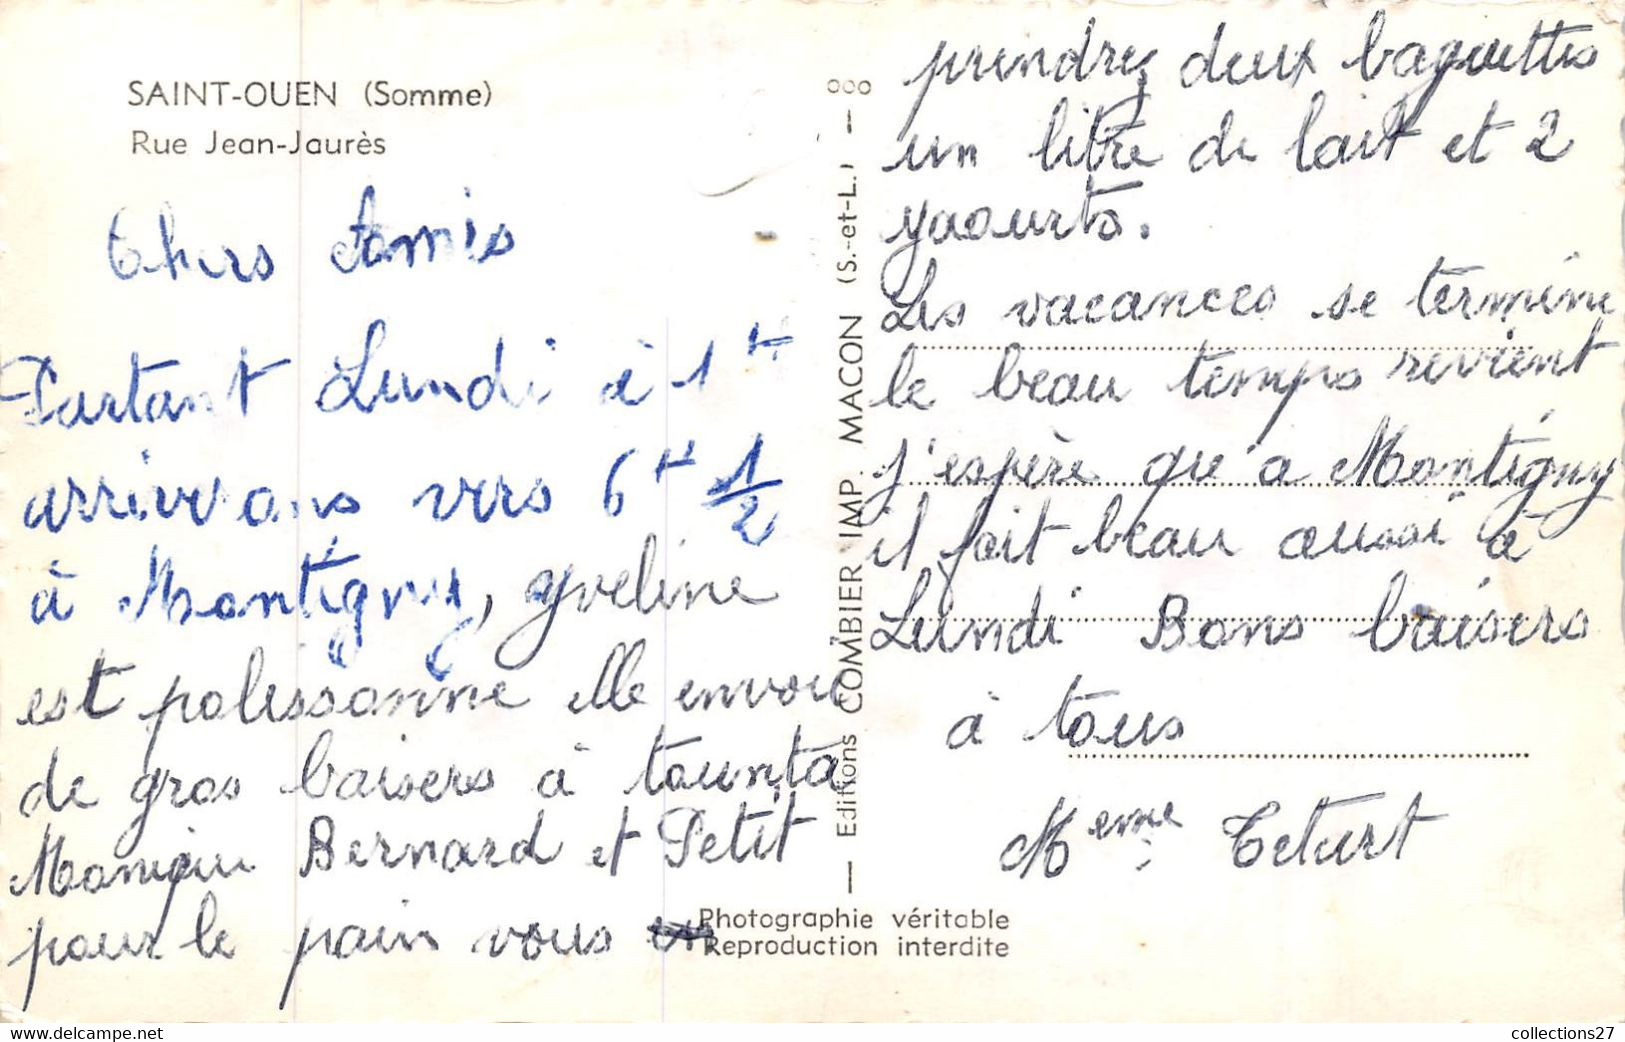 SAINT-OUEN (Somme)
Rue Jean-Jaurès
Chers Amis
Partant Lundi à 1H
arriverons vers 6H 1/2
à Montigny, yveline
est polissonne elle envoie
de gros baisers à tounta
Monique Bernard et Petit
pour le pain vous
prendrez deux baguettes
un litre de lait et 2
yaourts.
Les vacances se termine
le beau temps revient
j'espère que a Montigny
il fait beau aussi à
Lundi Bons baisers
à tous
Meme
— Editions COMBIER IMP. MACON (S.-et-L.) —
Photographie véritable
Reproduction interdite
collections27